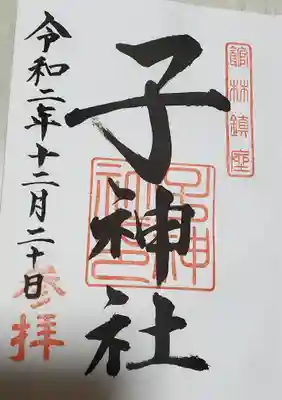 館林鎮座
子神社
令和二年十二月二十日
参拝